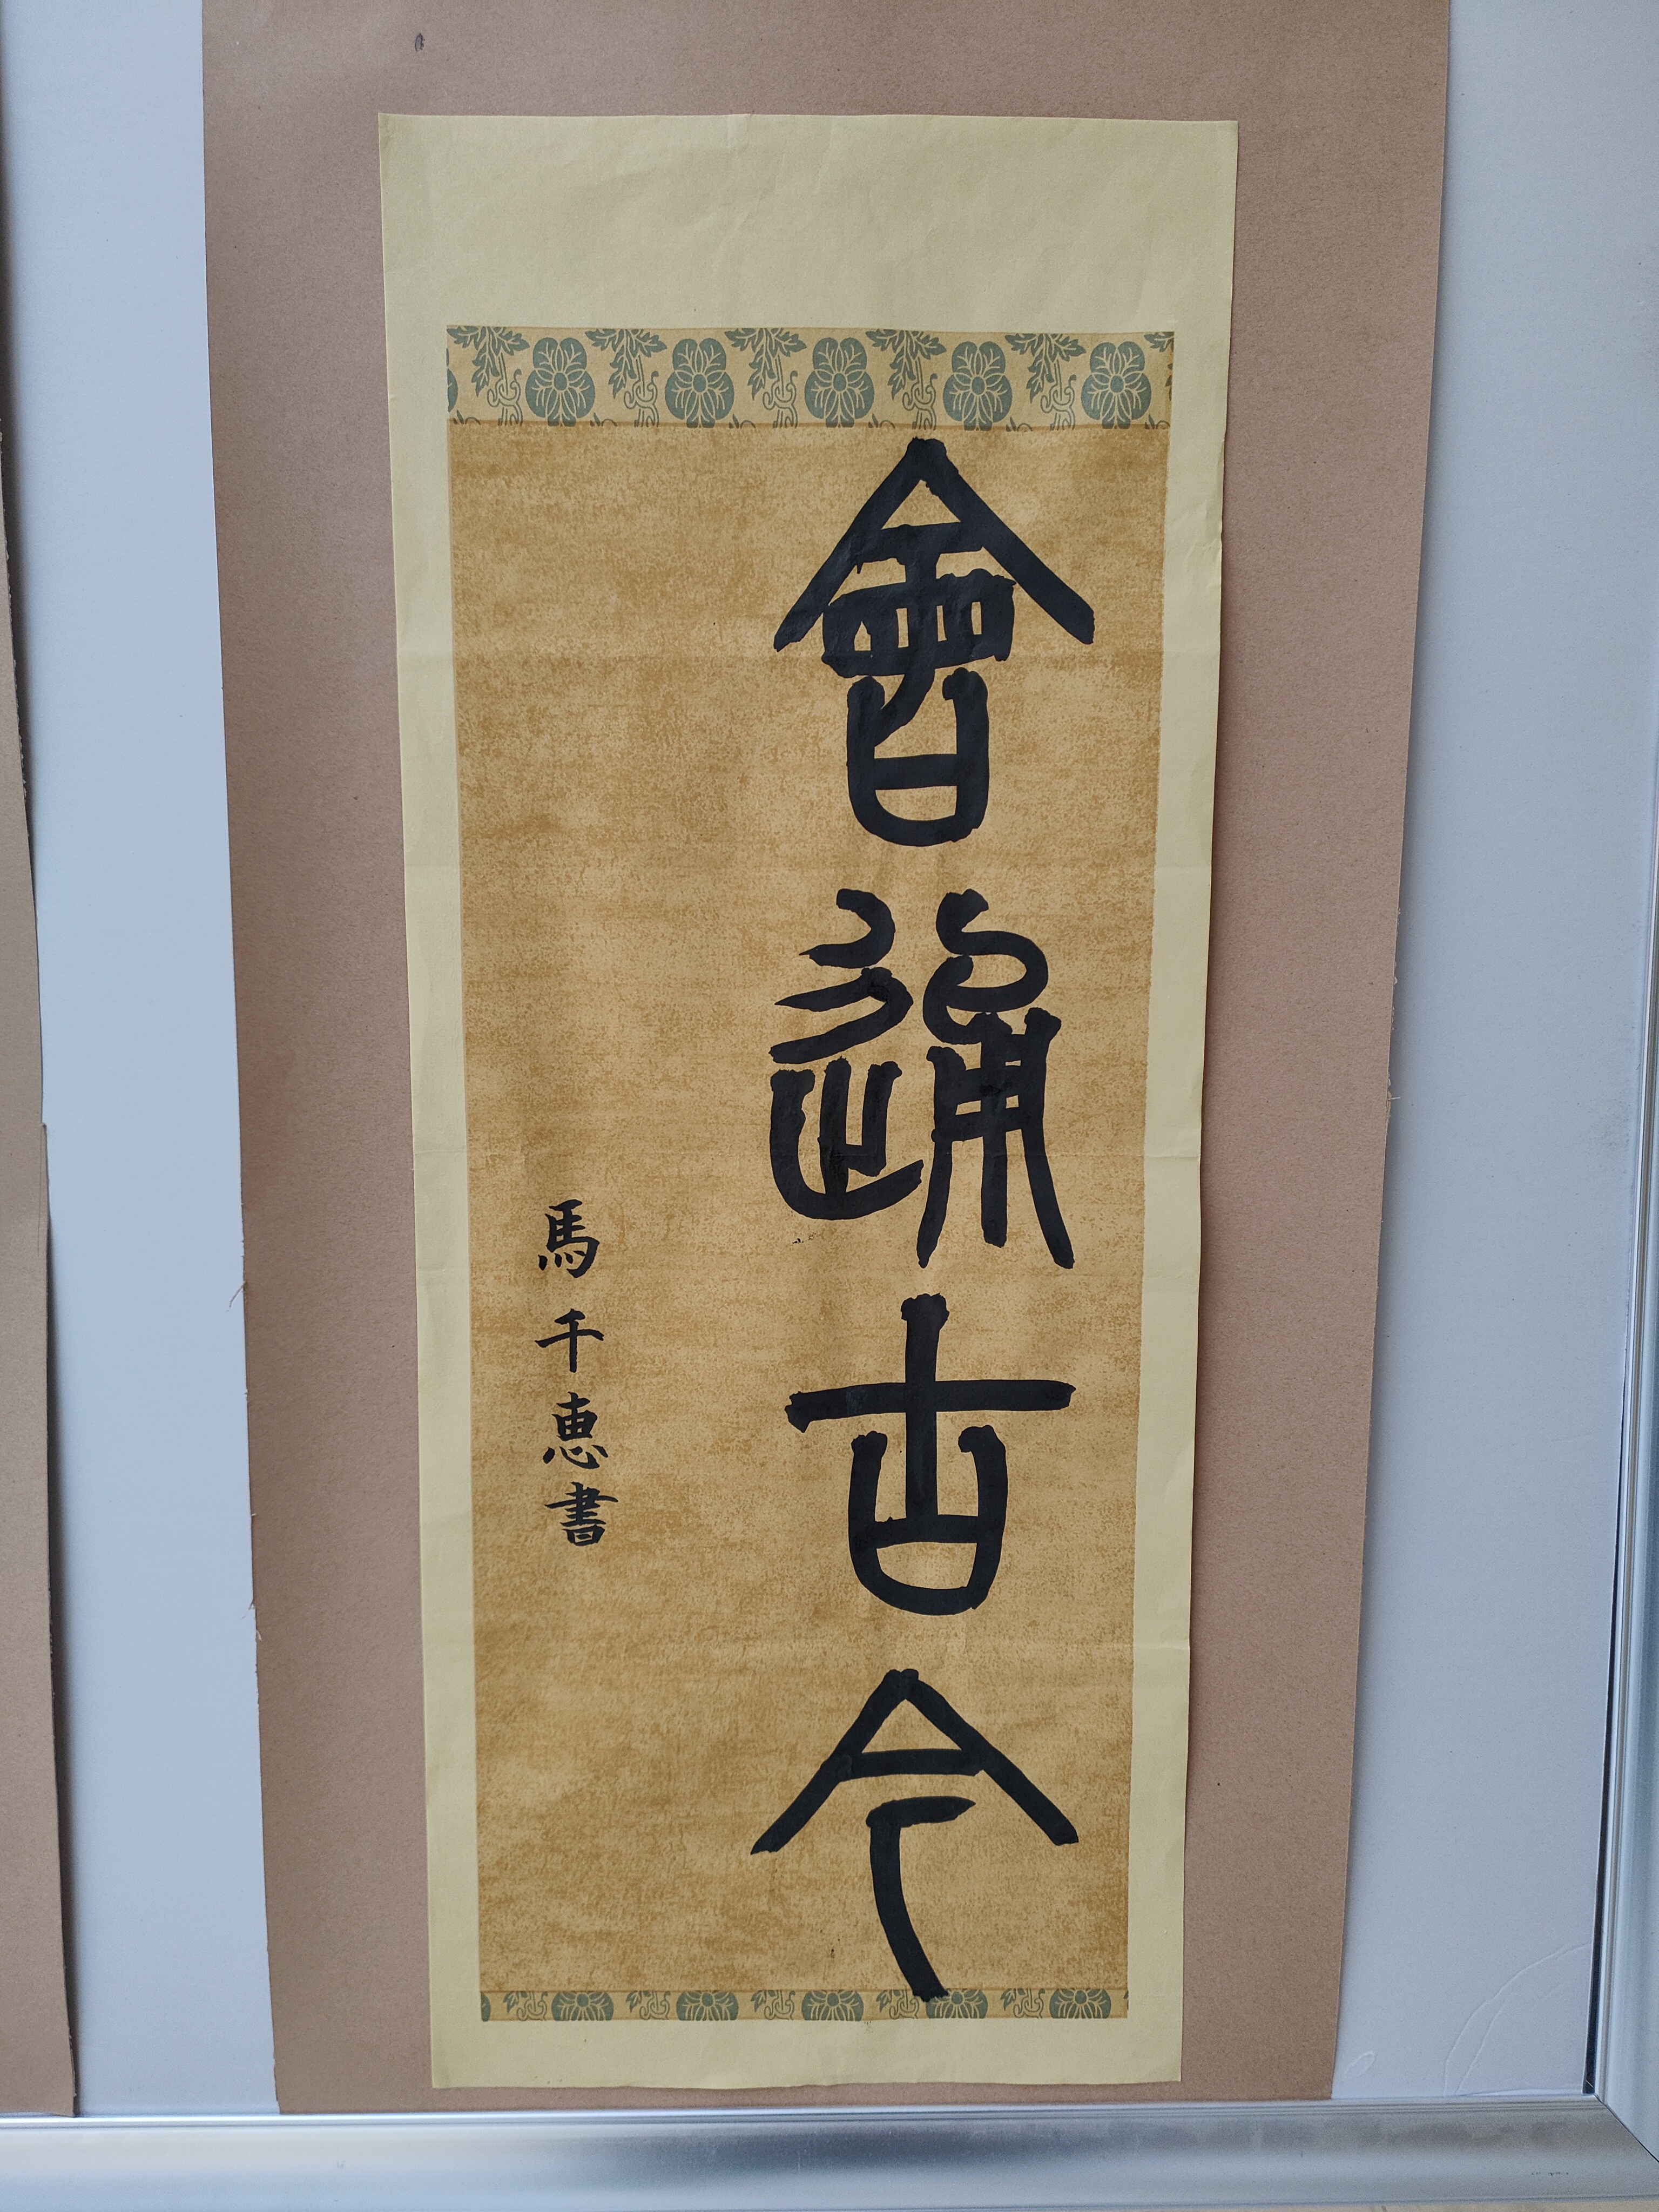 會通古今
馬千恵書